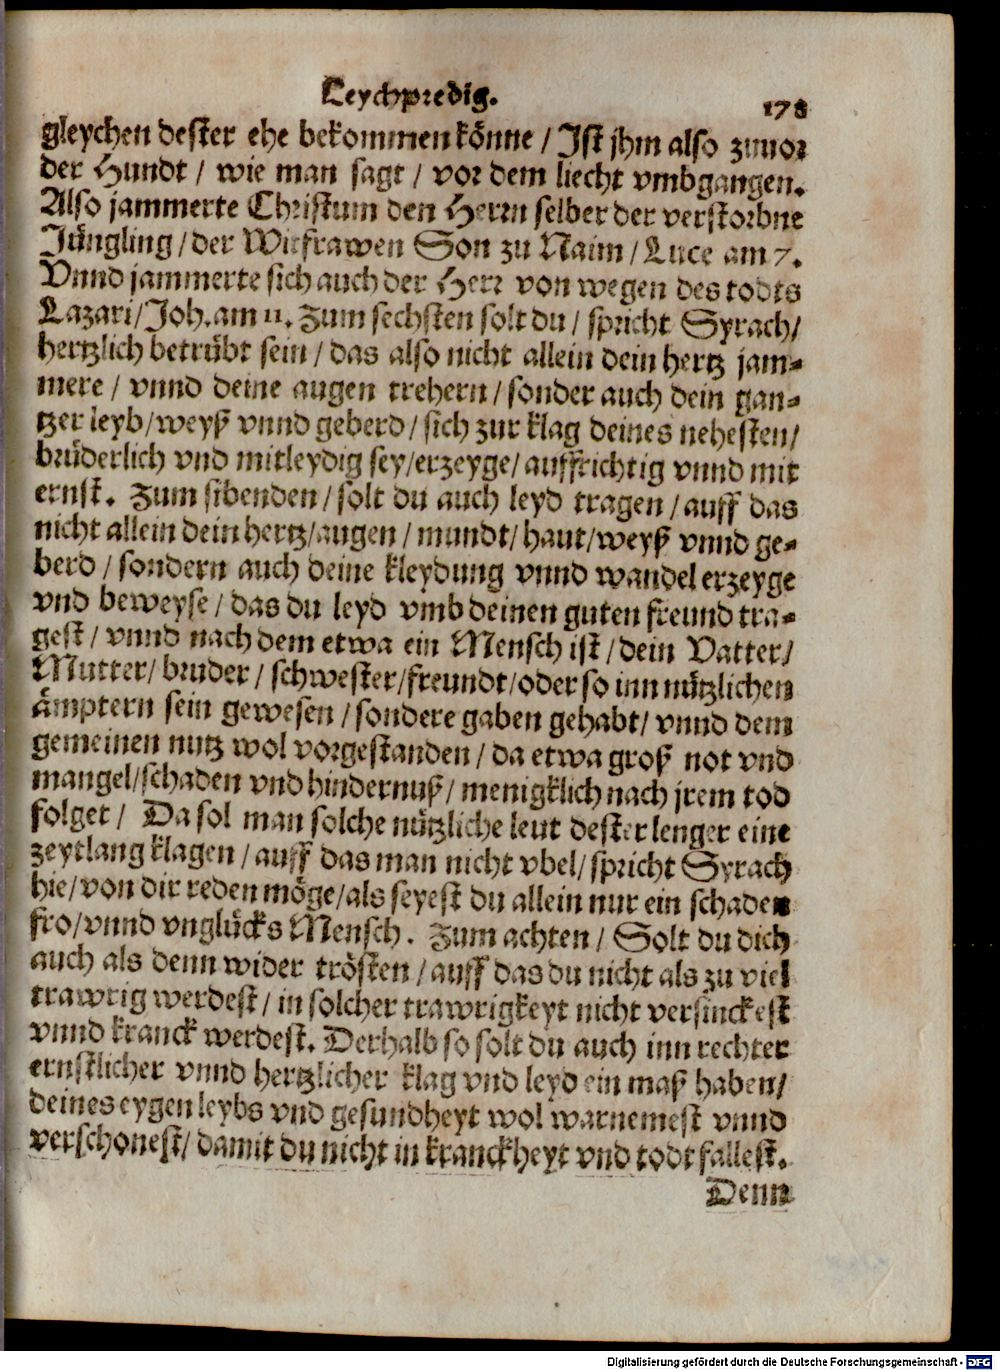 Leychpredig.
178
gleychen dester ehe bekommen könne / Ist jhm also zuuor
der Hundt / wie man sagt / vor dem liecht vmbgangen.
Also jammerte Christum den Herrn selber der verstorbne
Jüngling / der Witfrawen Son zu Naim / Luce am 7.
Vnnd jammerte sich auch der Herr von wegen des todts
Lazari / Joh. am 11. Zum sechsten solt du / spricht Syrach /
hertzlich betrübt sein / das also nicht allein dein hertz jam-
mere / vnnd deine augen trehern / sonder auch dein gan-
tzer leyb / weyß vnnd geberd / sich zur klag deines nehesten /
brüderlich vnd mitleydig sey / erzeyge / auffrichtig vnnd mit
ernst. Zum sibenden / solt du auch leyd tragen / auff das
nicht allein dein hertz / augen / mundt / haut / weyß vnnd ge-
berd / sondern auch deine kleydung vnnd wandel erzeyge
vnd beweyse / das du leyd vmb deinen guten freund tra-
gest / vnnd nach dem etwa ein Mensch ist / dein Vatter /
Mutter / bruder / schwester / freundt / oder so inn nützlichen
ämptern sein gewesen / sondere gaben gehabt / vnnd dem
gemeinen nutz wol vorgestanden / da etwa groß not vnd
mangel / schaden vnd hindernuß / menigklich nach jrem tod
folget / Da sol man solche nützliche leut dester lenger eine
zeytlang klagen / auff das man nicht vbel / spricht Syrach
hie / von dir reden möge / als seyest du allein nur ein schaden
fro / vnnd vnglücks Mensch. Zum achten / Solt du dich
auch als denn wider trösten / auff das du nicht als zu viel
trawrig werdest / in solcher trawrigkeyt nicht versinckest
vnnd kranck werdest. Derhalb so solt du auch inn rechter
ernstlicher vnnd hertzlicher klag vnd leyd ein maß haben /
deines eygen leybs vnd gesundheyt wol warnemest vnnd
verschonest / damit du nicht in kranckheyt vnd todt fallest.
Denn
Digitalisierung gefördert durch die Deutsche Forschungsgemeinschaft - DFG